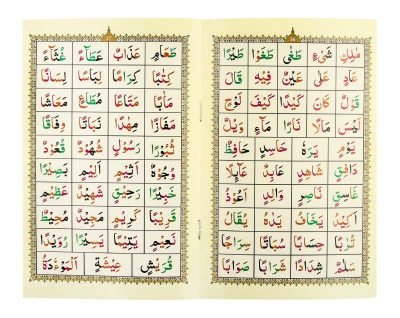 مَلٰئِ شَیْءٍ طَغٰی طَغَوْا طَيْرًا
عَادٍ عَلٰی عَيْنٌ فِيْهِ قَالَ
قَوْلٌ كَانَ كَيْدًا كَيْفَ لَوْحٍ
لَيْسَ مَالًا نَارًا مَآءً وَيْلٌ
يَوْمٍ يَرَهٗ حَاسِدٍ حَافِظٌ
دَافِقٍ شَاهِدٍ عَابِدٌ عَآئِلًا
غَاسِقٍ نَاصِرٍ وَالِدٍ اَعُوْذُ
اَكِيْدُ يَخَافُ يَدٰهُ يُقَالُ
تُرٰبًا حِسَابًا سُبَاتًا سِرَاجًا
سَلٰمٌ شِدَادًا شَرَابًا صَوَابًا
طَعَامٍ عَذَابٌ عَطَآءً غُثَآءً
كِتٰبًا كِرَامًا لِبَاسًا لِسَانًا
مَاٰبًا مَتَاعًا مُطَاعٍ مَعَاشًا
مَفَازًا مِهٰدًا نَبَاتًا وِفَاقًا
ثُبُوْرًا رَسُوْلٌ شُهُوْدٌ قُعُوْدٌ
وُجُوْهٌ اَثِيْمٍ اَلِيْمٍ بَصِيْرًا
خَبِيْرًا رَحِيْقٍ شَهِيْدٌ عَظِيْمٍ
قَرِيْبًا كَرِيْمٍ مَجِيْدٌ مُحِيْطٌ
نَعِيْمٍ يَتِيْمًا يَسِيْرًا رُوَيْدًا
قُرَيْشٍ عِيْشَةٍ اَلْمَوْءٗدَةُ